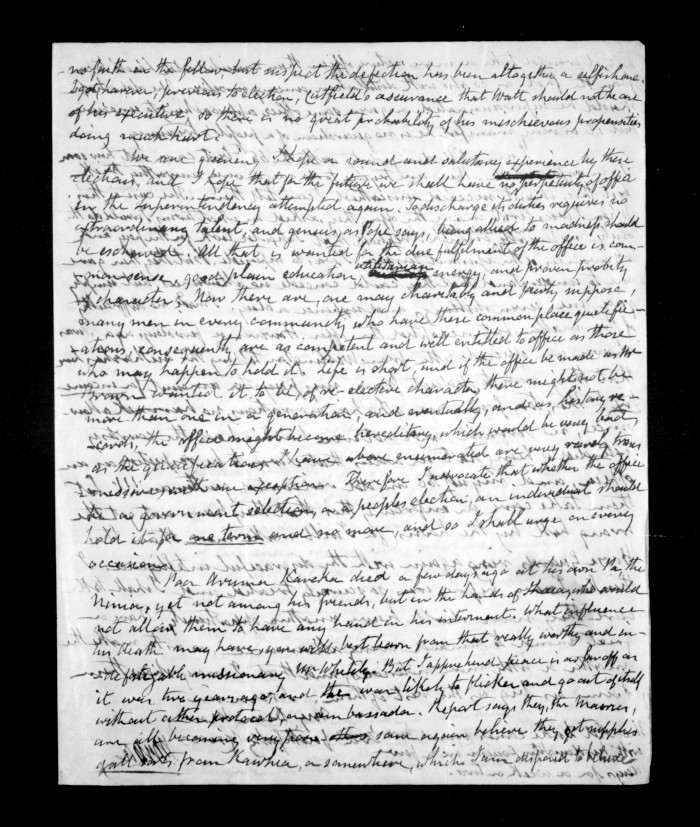 no faith in the fellow, but suspect the defection has been altogether a selfish one.
I got however, previous to election, Cutfield's assurance that Watt should not be one
of his executive, so there is no great probability of his mischievous propensities
doing much hurt.
We are gaining, I hope a sound and salutary experience by these
elections, and I hope that for the future we shall have no perpetuity of office
in the Superintendency attempted again. To discharge its duties requires no
extraordinary talent, and genius, as Pope says, being allied to madness should
be eschewed. All that is wanted for the due fulfilment of the office is com-
-mon sense, good plain education, utilitarian energy, and proven probity
of character. Now there are, one may charitably and fairly suppose,
many men in every community who have these common place qualific-
-ations, consequently are as competent and well entitled to office as those
who may happen to hold it. Life is short, and if the office be made as Mr
Brown wanted it to be, of re-elective character, there might not be
more than one in a generation, and eventually, and as history re-
-cords, the office might become hereditary, which would be very bad
as the qualifications I have above enumerated are very rarely
Therefore I advocate that whether the office
be a government selection, or a peoples election, an individual should
hold it for one term and no more, and so I shall urge on every
occasion.
Poor Wiremu Kawaho died a few days ago at his own Pa, the
Ninia, yet not among his friends, but in the hands of those who would
not allow them to have any hand in his interment. What influence
his death may have, you will best learn from that really worthy and in-
-defatigable missionary Mr Whitely. But I apprehend peace is as far off as
it was two years ago, and the war likely to flicker and go out of itself
without either protocol, or ambassador. Report says they, the Maories,
are all becoming very poor some again believe they get supplies
of all sorts from Kawhia, or somewhere, which I am disposed to
days for a week or two.